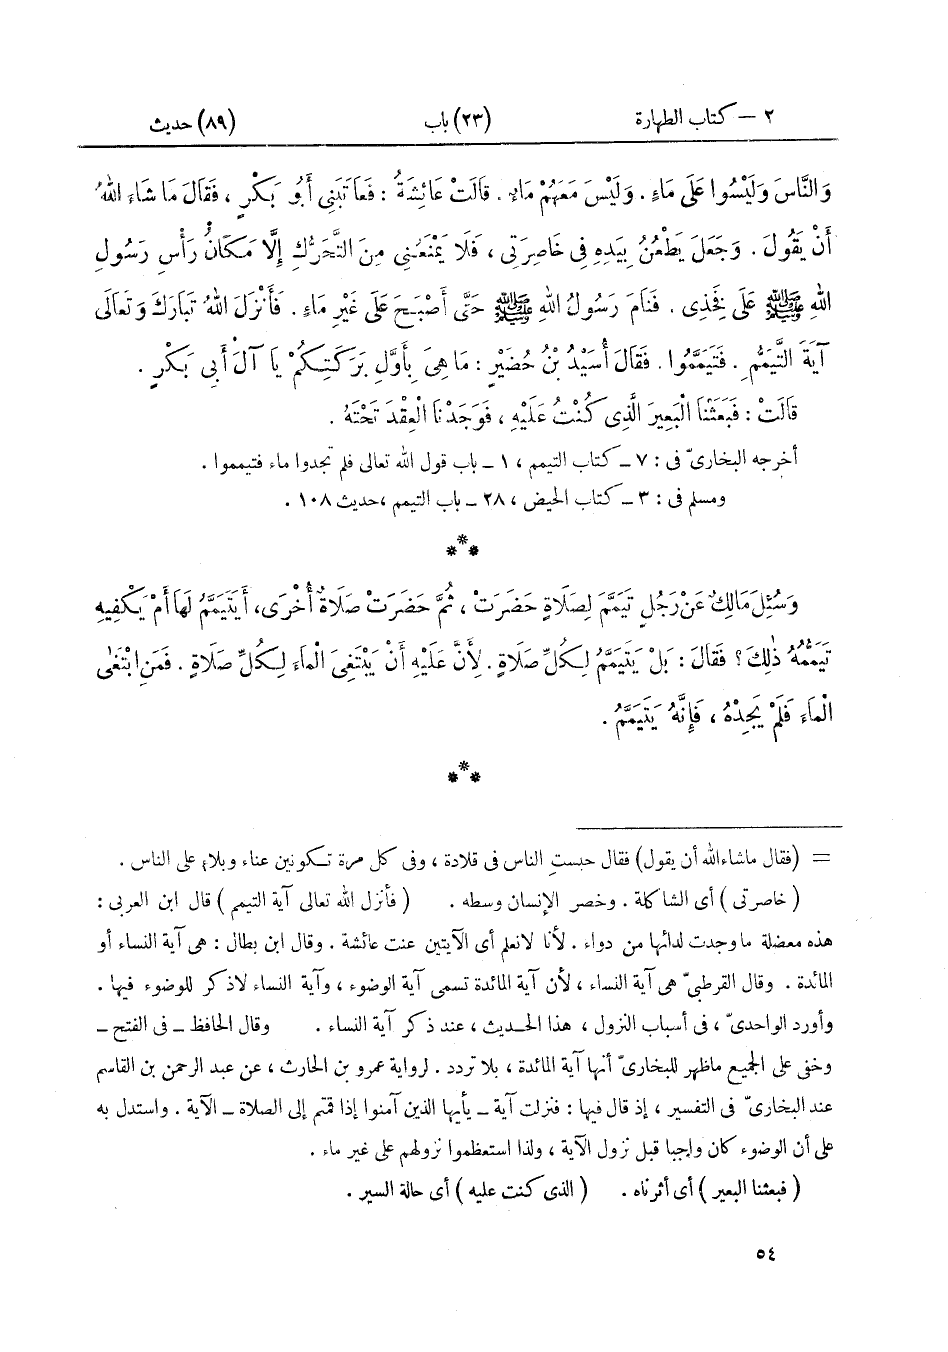 ٢ — كتاب الطهارة (٢٣) باب (٨٩) حديث
وَالنَّاسَ وَلَيْسُوا عَلَى مَاءٍ . وَلَيْسَ مَعَهُمْ مَاءٌ . قَالَتْ عَائِشَةُ : فَعَاتَبَنِي أَبُو بَكْرٍ ، فَقَالَ مَا شَاءَ اللهُ
أَنْ يَقُولَ . وَجَعَلَ يَطْعُنُ بِيَدِهِ فِي خَاصِرَتِي ، فَلَا يَمْنَعُنِي مِنَ التَّحَرُّكِ إِلَّا مَكَانُ رَأْسِ رَسُولِ
اللهِ ﷺ عَلَى فَخِذِي . فَنَامَ رَسُولُ اللهِ ﷺ حَتَّى أَصْبَحَ عَلَى غَيْرِ مَاءٍ . فَأَنْزَلَ اللهُ تَبَارَكَ وَتَعَالَى
آيَةَ التَّيَمُّمِ . فَتَيَمَّمُوا . فَقَالَ أُسَيْدُ بْنُ حُضَيْرٍ : مَا هِيَ بِأَوَّلِ بَرَكَتِكُمْ يَا آلَ أَبِي بَكْرٍ .
قَالَتْ : فَبَعَثْنَا الْبَعِيرَ الَّذِي كُنْتُ عَلَيْهِ ، فَوَجَدْنَا الْعِقْدَ تَحْتَهُ .
أخرجه البخارىّ فى : ٧ ـ كتاب التيمم ، ١ ـ باب قول الله تعالى فلم تجدوا ماء فتيمموا .
ومسلم فى : ٣ ـ كتاب الحيض ، ٢٨ ـ باب التيمم ، حديث ١٠٨ .
***
وَسُئِلَ مَالِكٌ عَنْ رَجُلٍ تَيَمَّمَ لِصَلَاةٍ حَضَرَتْ ، ثُمَّ حَضَرَتْ صَلَاةٌ أُخْرَى ، أَيَتَيَمَّمُ لَهَا أَمْ يَكْفِيهِ
تَيَمُّمُهُ ذٰلِكَ ؟ فَقَالَ : بَلْ يَتَيَمَّمُ لِكُلِّ صَلَاةٍ . لِأَنَّ عَلَيْهِ أَنْ يَبْتَغِيَ الْمَاءَ لِكُلِّ صَلَاةٍ . فَمَنِ ابْتَغَى
الْمَاءَ فَلَمْ يَجِدْهُ ، فَإِنَّهُ يَتَيَمَّمُ .
***
= (فقال ماشاءالله أن يقول) فقال حبستِ الناس فى قلادة ، وفى كل مرة تكونين عناء وبلاء على الناس .
( خاصرتى ) أى الشاكلة . وخصر الإنسان وسطه . ( فأنزل الله تعالى آية التيمم ) قال ابن العربى :
هذه معضلة ماوجدت لدائها من دواء . لأنا لانعلم أى الآيتين عنت عائشة . وقال ابن بطال : هى آية النساء أو
المائدة . وقال القرطبىّ هى آية النساء ، لأن آية المائدة تسمى آية الوضوء ، وآية النساء لاذكر للوضوء فيها .
وأورد الواحدىّ ، فى أسباب النزول ، هذا الحديث ، عند ذكر آية النساء . وقال الحافظ ـ فى الفتح ـ
وخفى على الجميع ماظهر للبخارىّ أنها آية المائدة ، بلا تردد . لرواية عمرو بن الحارث ، عن عبد الرحمن بن القاسم
عند البخارىّ فى التفسير ، إذ قال فيها : فنزلت آية ـ يأيها الذين آمنوا إذا قمتم إلى الصلاة ـ الآية . واستدل به
على أن الوضوء كان واجبا قبل نزول الآية ، ولذا استعظموا نزولهم على غير ماء .
( فبعثنا البعير ) أى أثرناه . ( الذى كنت عليه ) أى حالة السير .
٥٤